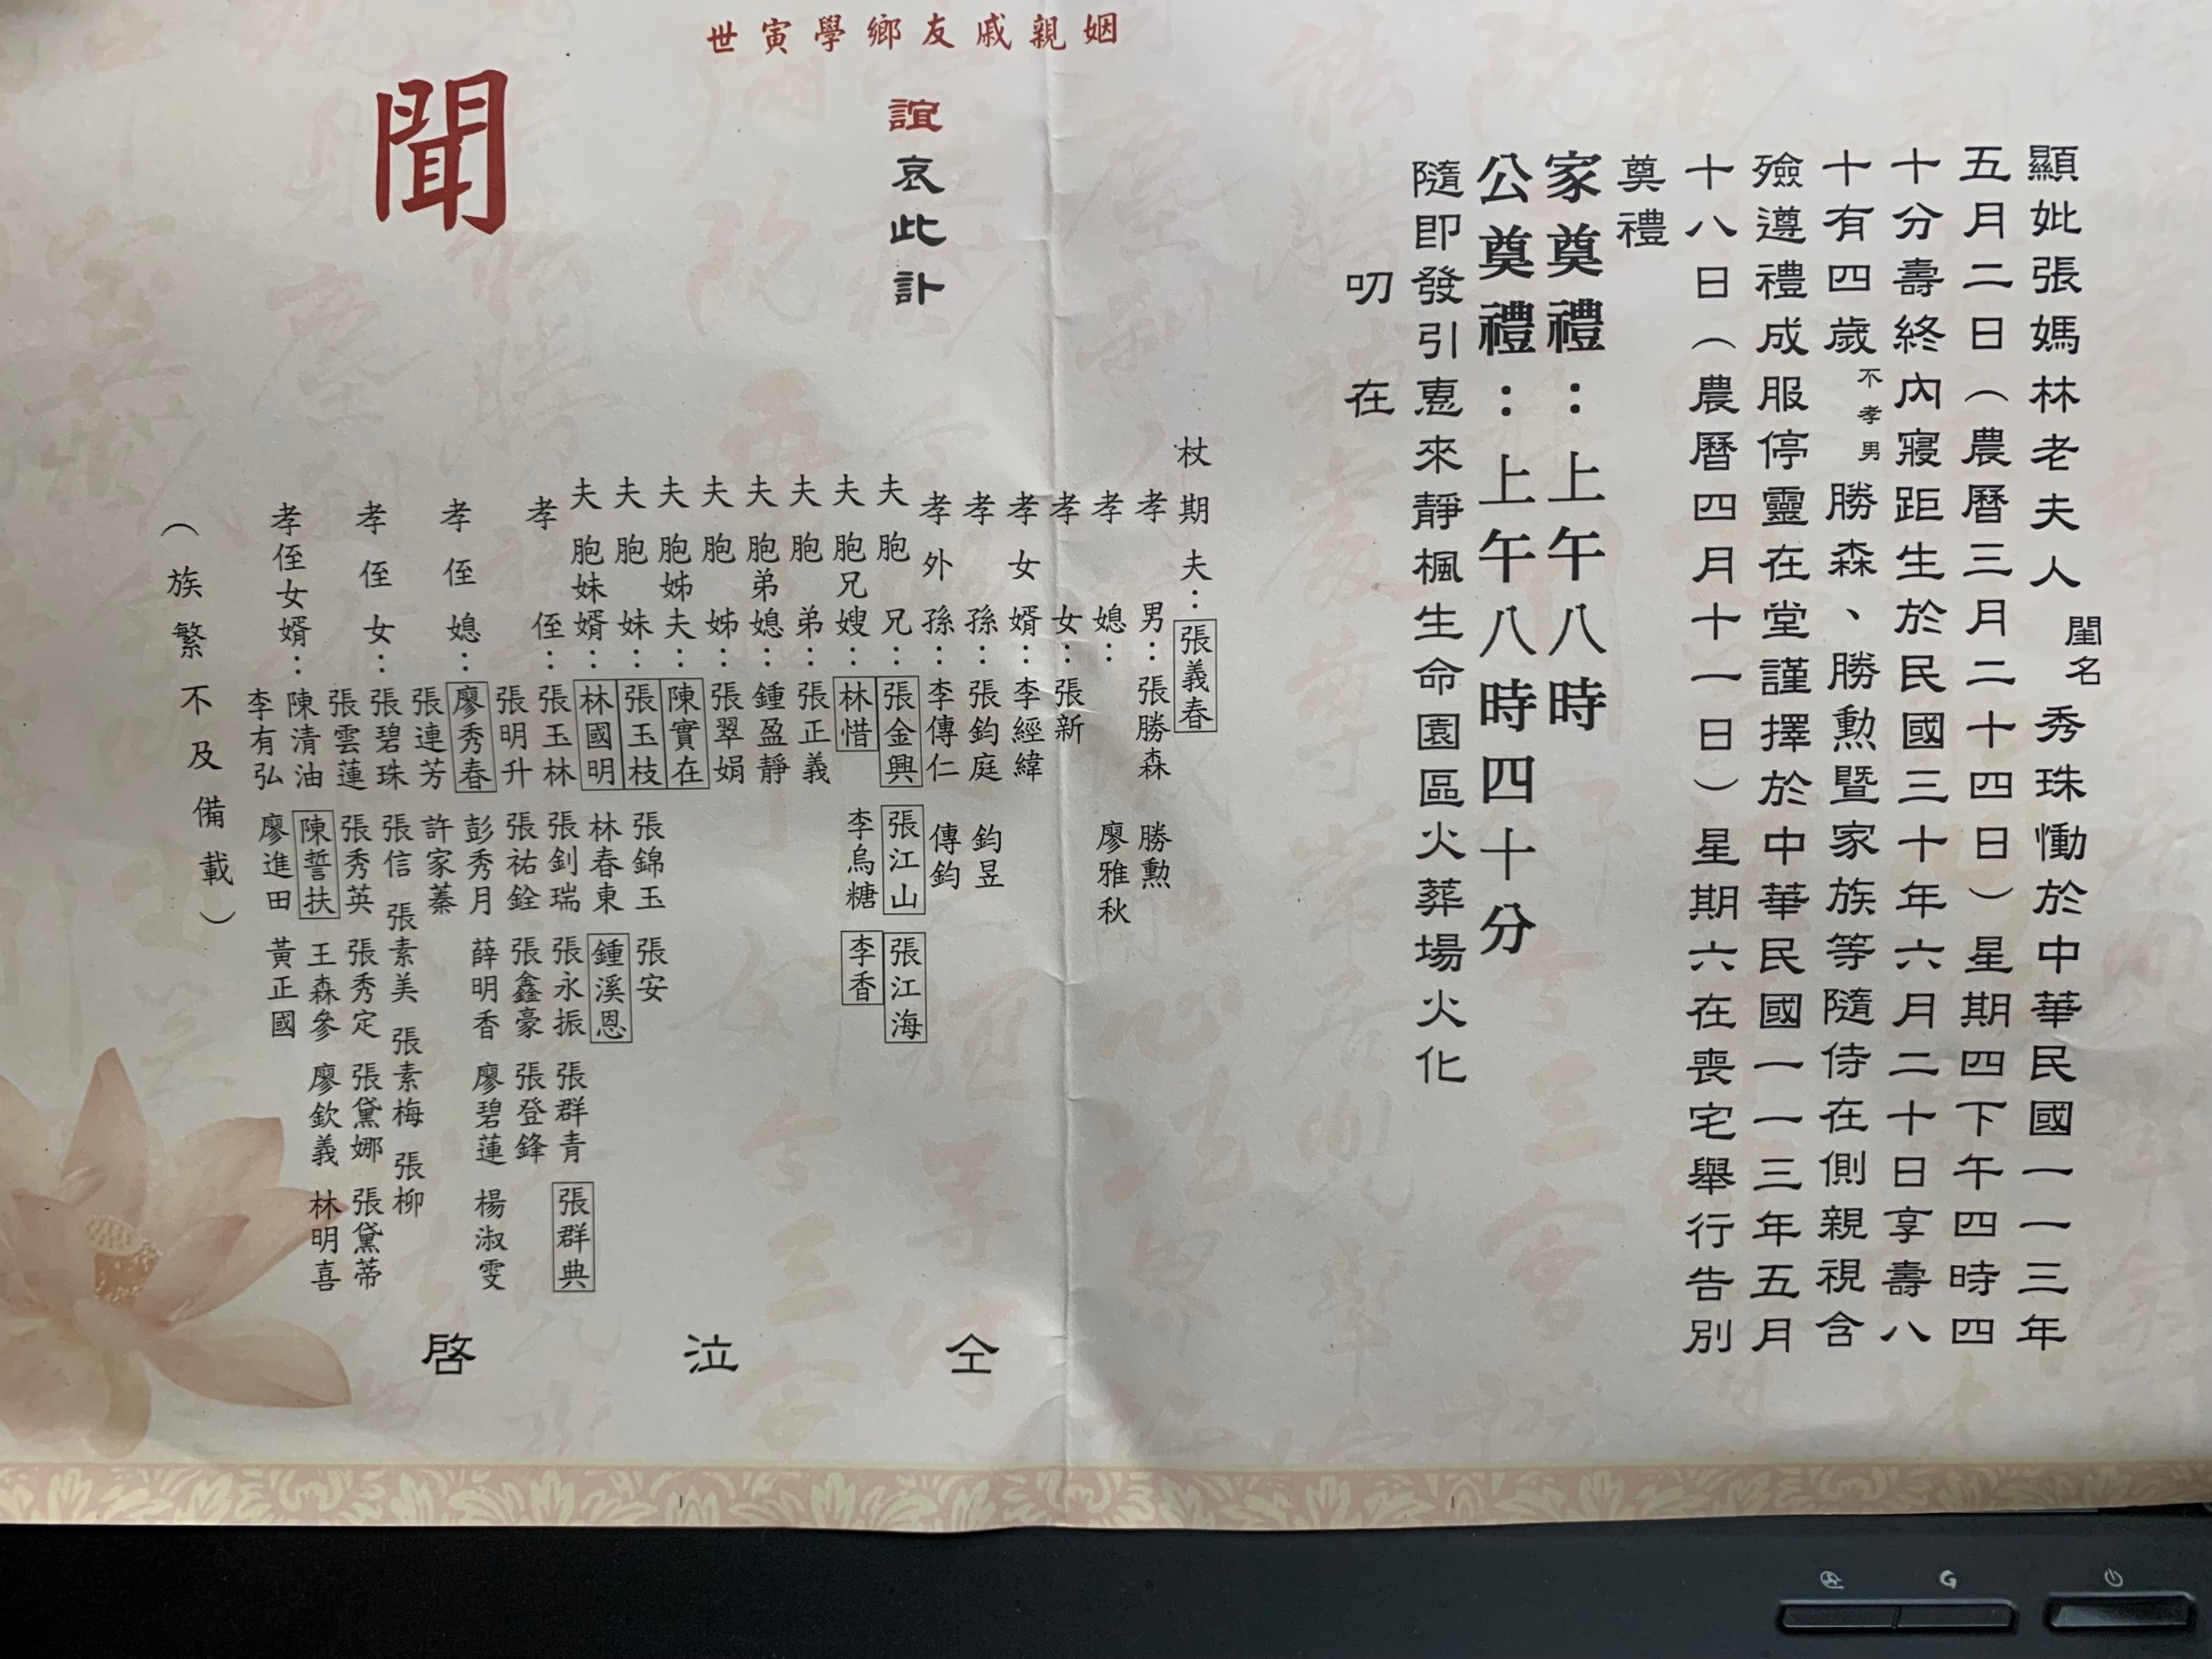 顯妣張媽林老夫人閨名秀珠慟於中華民國一一三年
五月二日（農曆三月二十四日）星期四下午四時四
十分壽終內寢距生於民國三十年六月二十日享壽八
十有四歲不孝男勝森、勝勲暨家族等隨侍在側親視含
殮遵禮成服停靈在堂謹擇於中華民國一一三年五月
十八日（農曆四月十一日）星期六在喪宅舉行告別
奠禮
家奠禮：上午八時
公奠禮：上午八時四十分
隨即發引惠來靜楓生命園區火葬場火化
叨在
姻親戚友鄉學寅世
誼哀此訃
聞
杖期夫：張義春
孝男：張勝森 勝勲
孝媳：廖雅秋
孝女：張新
孝女婿：李經緯
孝孫：張鈞庭 鈞昱
孝外孫：李傳仁 傳鈞
夫胞兄：張金興 張江山 張江海
夫胞兄嫂：林惜 李烏糖 李香
夫胞弟：張正義
夫胞弟媳：鍾盈靜
夫胞姊：張翠娟
夫胞姊夫：陳實在
夫胞妹：張玉枝 張錦玉 張安
夫胞妹婿：林國明 林春東 鍾溪恩
孝侄：張玉林 張釗瑞 張永振 張群青 張群典
張明升 張祐銓 張鑫豪 張登鋒
孝侄媳：廖秀春 彭秀月 薛明香 廖碧蓮 楊淑雯
張連芳 許家蓁
孝侄女：張碧珠 張信 張素美 張素梅 張柳
張雲蓮 張秀英 張秀定 張黛娜 張黛蒂
孝侄女婿：陳清油 陳誓扶 王森參 廖欽義 林明喜
李有弘 廖進田 黃正國
（族繁不及備載）
仝泣啓